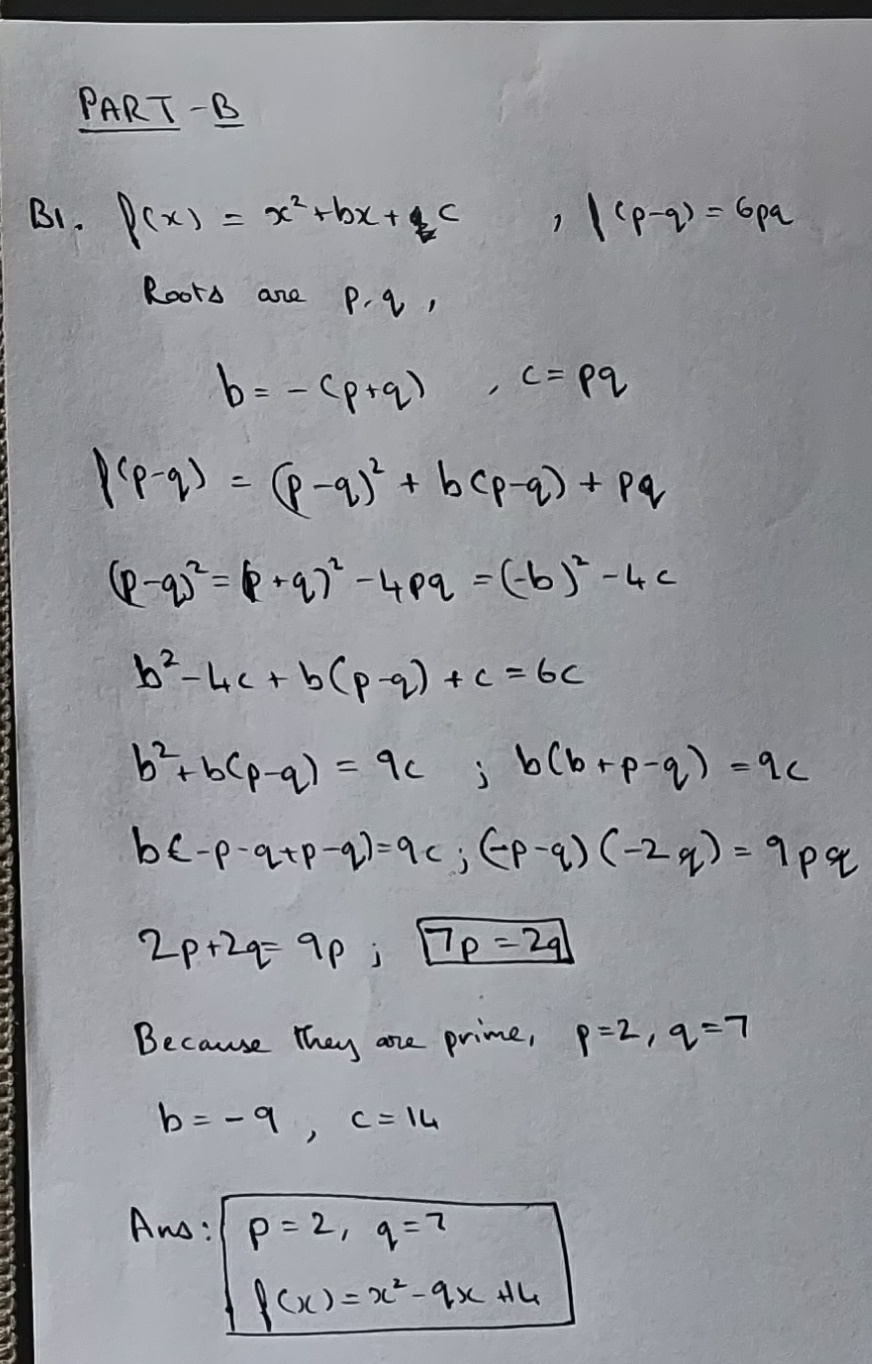 PART-B
B1. f(x) = x²+bx+c , f(p-q) = 6pq
Roots are p, q,
b = -(p+q) , c = pq
f(p-q) = (p-q)² + b(p-q) + pq
(p-q)² = (p+q)² - 4pq = (-b)² - 4c
b² - 4c + b(p-q) + c = 6c
b² + b(p-q) = 9c ; b(b+p-q) = 9c
b(-p-q+p-q) = 9c ; (-p-q)(-2q) = 9pq
2p+2q = 9p ; 7p = 2q
Because they are prime, p=2, q=7
b = -9 , c = 14
Ans: p = 2, q = 7
f(x) = x² - 9x + 14